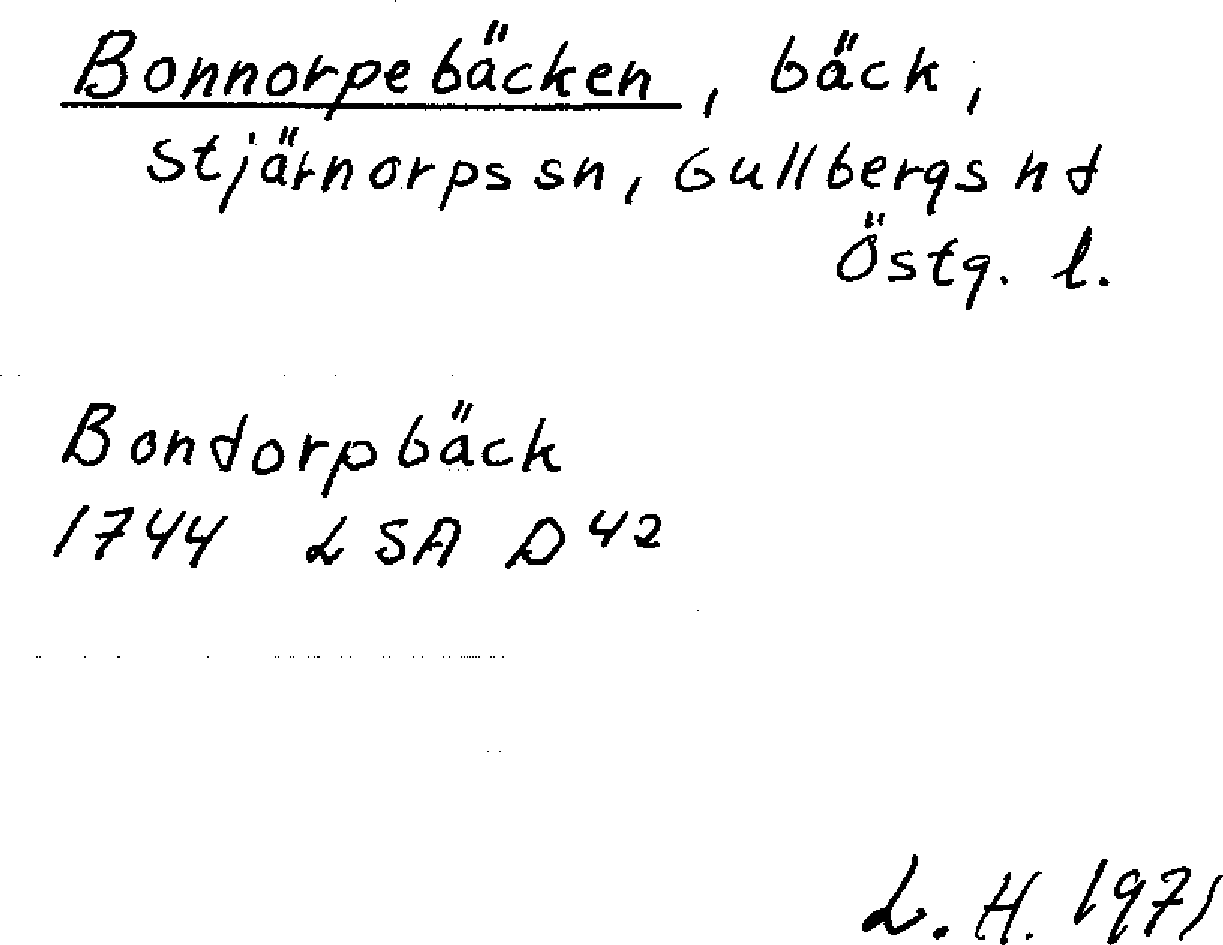 Bonnorpebäcken, bäck,
Stjärnorps sn, Gullbergs hd
Östg. l.
Bondorpbäck
1744 LSA D42
L. H. 1971